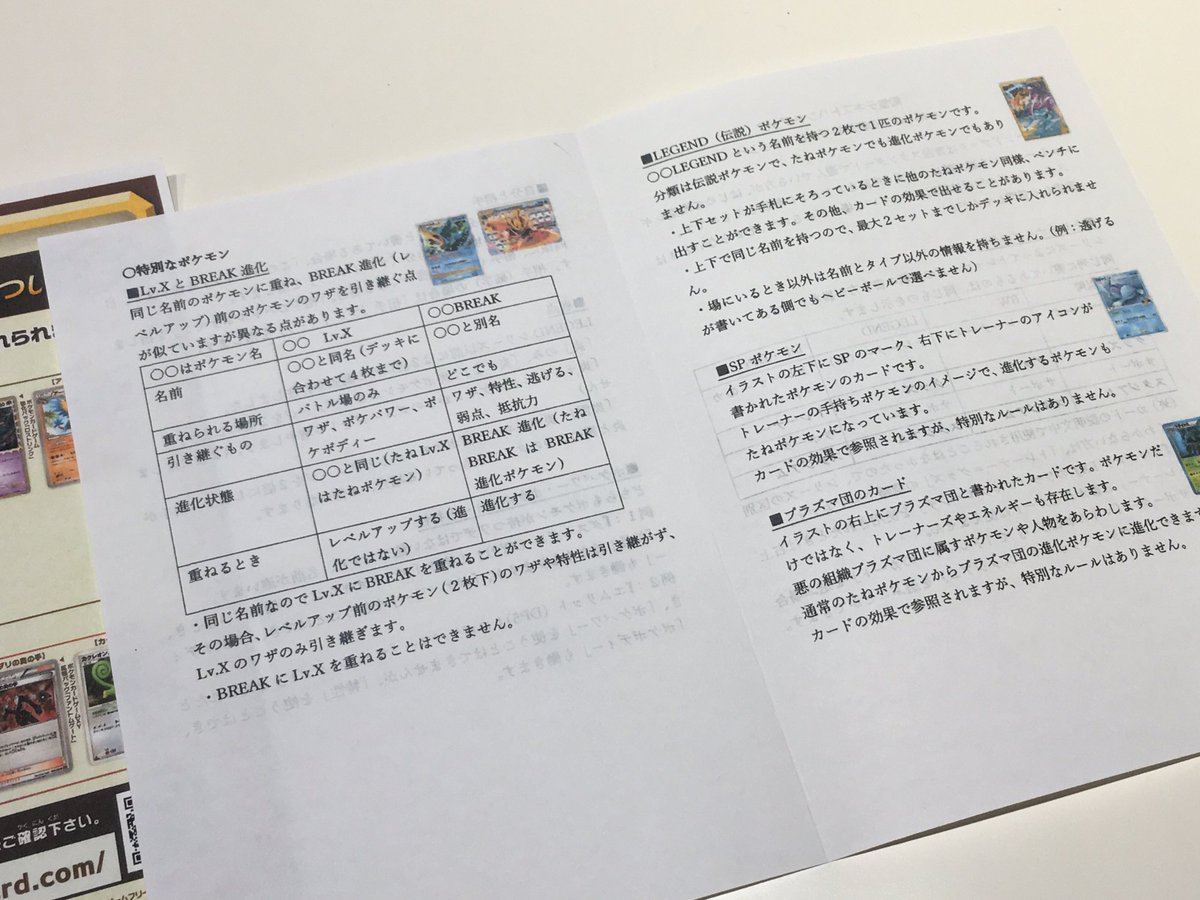 ○特別なポケモン
■Lv.X と BREAK 進化
同じ名前のポケモンに重ね、BREAK 進化（レ
ベルアップ）前のポケモンのワザを引き継ぐ点
が似ていますが異なる点があります。
○○はポケモン名
○○ Lv.X
○○BREAK
名前
○○と同名（デッキに
合わせて4枚まで）
○○と別名
重ねられる場所
バトル場のみ
どこでも
引き継ぐもの
ワザ、ポケパワー、ポ
ケボディー
ワザ、特性、逃げる、
弱点、抵抗力
進化状態
○○と同じ（たねLv.X
はたねポケモン）
BREAK 進化（たね
BREAK は BREAK
進化ポケモン）
重ねるとき
レベルアップする（進
化ではない）
進化する
・同じ名前なので Lv.X に BREAK を重ねることができます。
その場合、レベルアップ前のポケモン（2枚下）のワザや特性は引き継がず、
Lv.X のワザのみ引き継ぎます。
・BREAK に Lv.X を重ねることはできません。
■LEGEND（伝説）ポケモン
○○LEGEND という名前を持つ2枚で1匹のポケモンです。
分類は伝説ポケモンで、たねポケモンでも進化ポケモンでもあり
ません。
・上下セットが手札にそろっているときに他のたねポケモン同様、ベンチに
出すことができます。その他、カードの効果で出せることがあります。
・上下で同じ名前を持つので、最大2セットまでしかデッキに入れられませ
ん。
・場にいるとき以外は名前とタイプ以外の情報を持ちません。（例：逃げる
が書いてある側でもヘビーボールで選べません）
■SP ポケモン
イラストの左下に SP のマーク、右下にトレーナーのアイコンが
書かれたポケモンのカードです。
トレーナーの手持ちポケモンのイメージで、進化するポケモンも
たねポケモンになっています。
カードの効果で参照されますが、特別なルールはありません。
■プラズマ団のカード
イラストの右上にプラズマ団と書かれたカードです。ポケモンだ
けではなく、トレーナーズやエネルギーも存在します。
悪の組織プラズマ団に属すポケモンや人物をあらわします。
通常のたねポケモンからプラズマ団の進化ポケモンに進化できます
カードの効果で参照されますが、特別なルールはありません。
ご確認下さい。
rd.com/